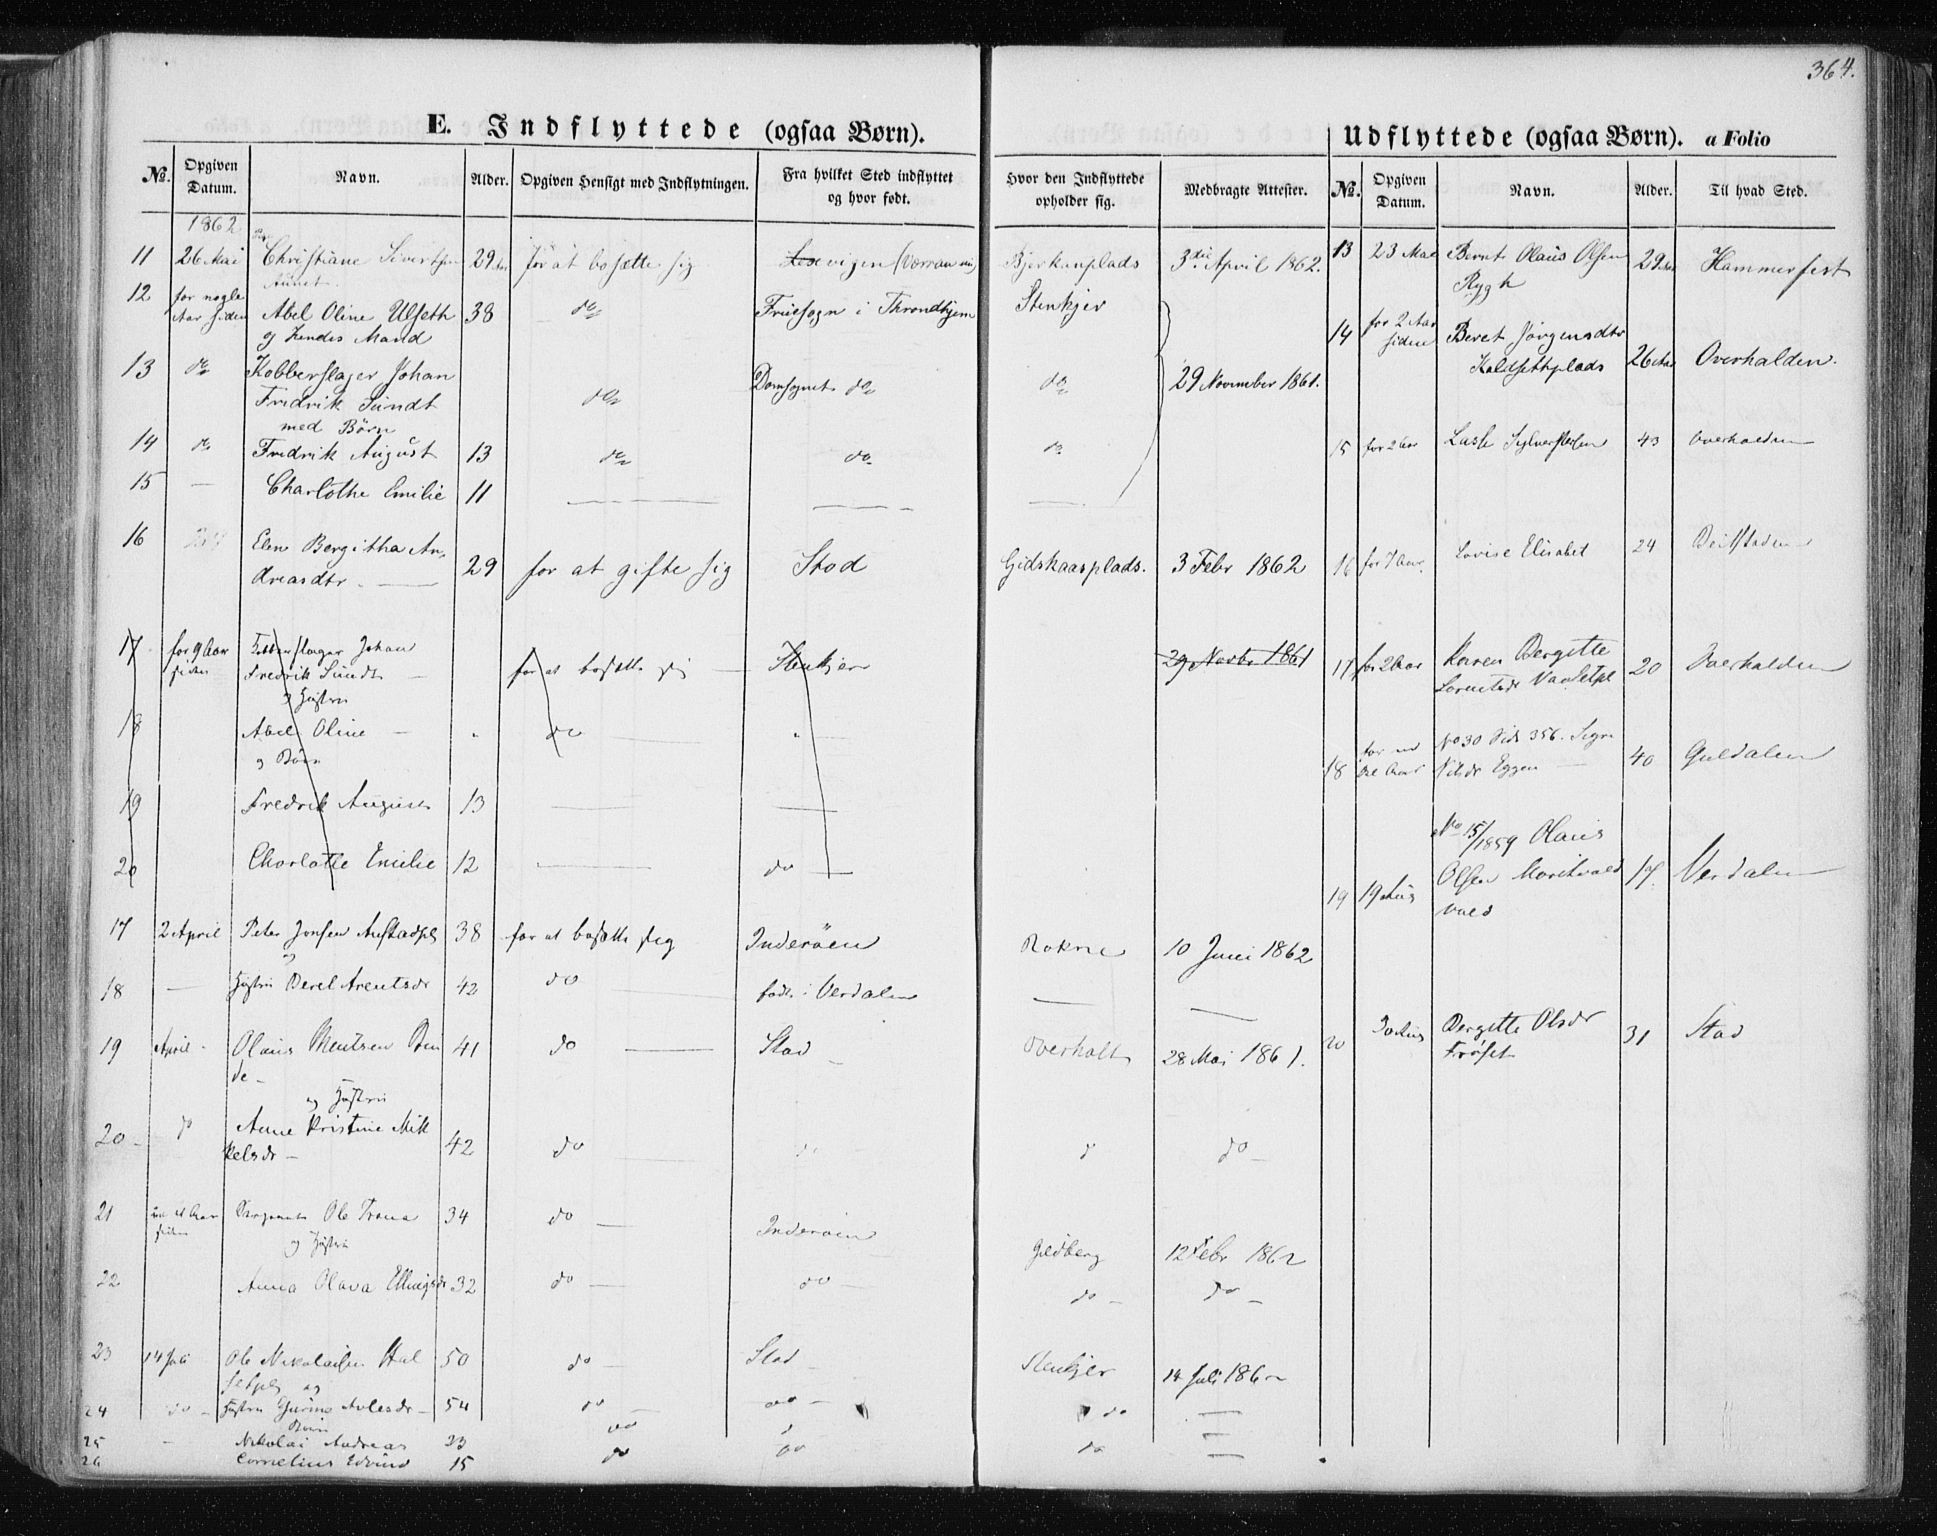 364.
E. Indflyttede (ogsaa Børn).
Udflyttede (ogsaa Børn). a Folio
No. Opgiven Datum. Navn. Alder. Opgiven Hensigt med Indflytningen. Fra hvilket Sted indflyttet og hvor født. Hvor den Indflyttede opholder sig. Medbragte Attester.
No. Opgiven Datum. Navn. Alder. Til hvad Sted.
1862
11 26 Mai Christiane Sivertsen 29 Aar for at bosætte sig vigen (Værran Bjerkanplads 3die April 1862.
Aunet.
12 for nogle Aar siden Abel Oline Ulseth 38 do Fruesogn i Throndhjem Stenkjer
og hendes Mand
13 do Kobberslager Johan do Domsognet do do 29 November 1861.
Fredrik Sundt
med Børn
14 do Fredrik August 13 do do do
15 — Charlothe Emilie 11
16 Elen Bergitha An-
dreasdtr. 29 for at gifte sig Stod Gidskaasplads. 3 Febr 1862
17 for 9 Aar siden Kobberslager Johan
Fredrik Sundt for at bosætte sig Stenkjer 29 Novbr 1861
og Hustru
18 Abel Oline do
og Børn
19 Fredrik August 13
20 Charlotte Emilie 12 do
17 2 April Peter Jonsen Austadpl 38 for at bosætte sig Inderøen Rokne 10 Juni 1862
og
18 — Hustru Beret Arentsdr 42 do født i Verdalen
19 April Olaus Mentsen Bin
de 41 do Stod Overholt 28 Mai 1861.
og Hustru
20 do Anne Kristine Mik
kelsdr 42 do do
21 Aar siden Ole Trana 34 do Inderøen Geldberg 12 Febr 1862
og Hustru
22 Anna Olava Ellingsdr 32 do do do do
23 14 Juli Ole Nikolaisen Hal 50 do Stod Stenkjer 14 Juli 1862
setpl og
24 do Hustru Gurine Avlesdr 54 do do do
Børn
25 Nikolai Andreas 23 do
26 Cornelius Edvind 15 do do do
13 23 Mai Bernt Olaus Olsen 29 Aar Hammerfest
Rygh
14 for 2 Aar siden Beret Jørgensdtr
Kaldsethplads 26 Aar Overhalden.
15 for 2 Aar Lasse Sylvestersen 43 Overhalden
16 for 7 Aar Lovise Elisabet 24 Beitstaden
17 for 2 Aar Karen Bergitte
Lorentsdr 20 Overhalden
18 No 30 Side 356. Sigri
Nilsdr Eggen 40 Guldalen
No 15/1859 Olaus
19 19 Aug Olsen 17 Verdalen
20 Aug Bergitte Olsdr 31 Stod
Frøset